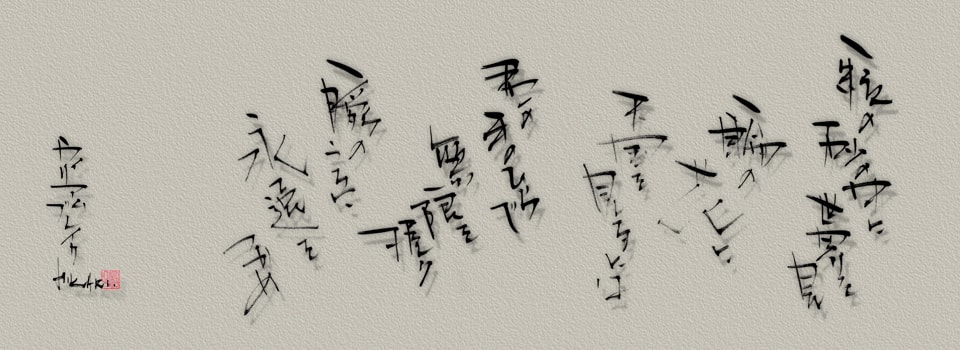 一粒の
砂の中に
世界を
見
一輪の
花に
天国を
見るには
君の
手のひらで
無限を
握り
一瞬の
うちに
永遠を
ウィリアム
ブレイク